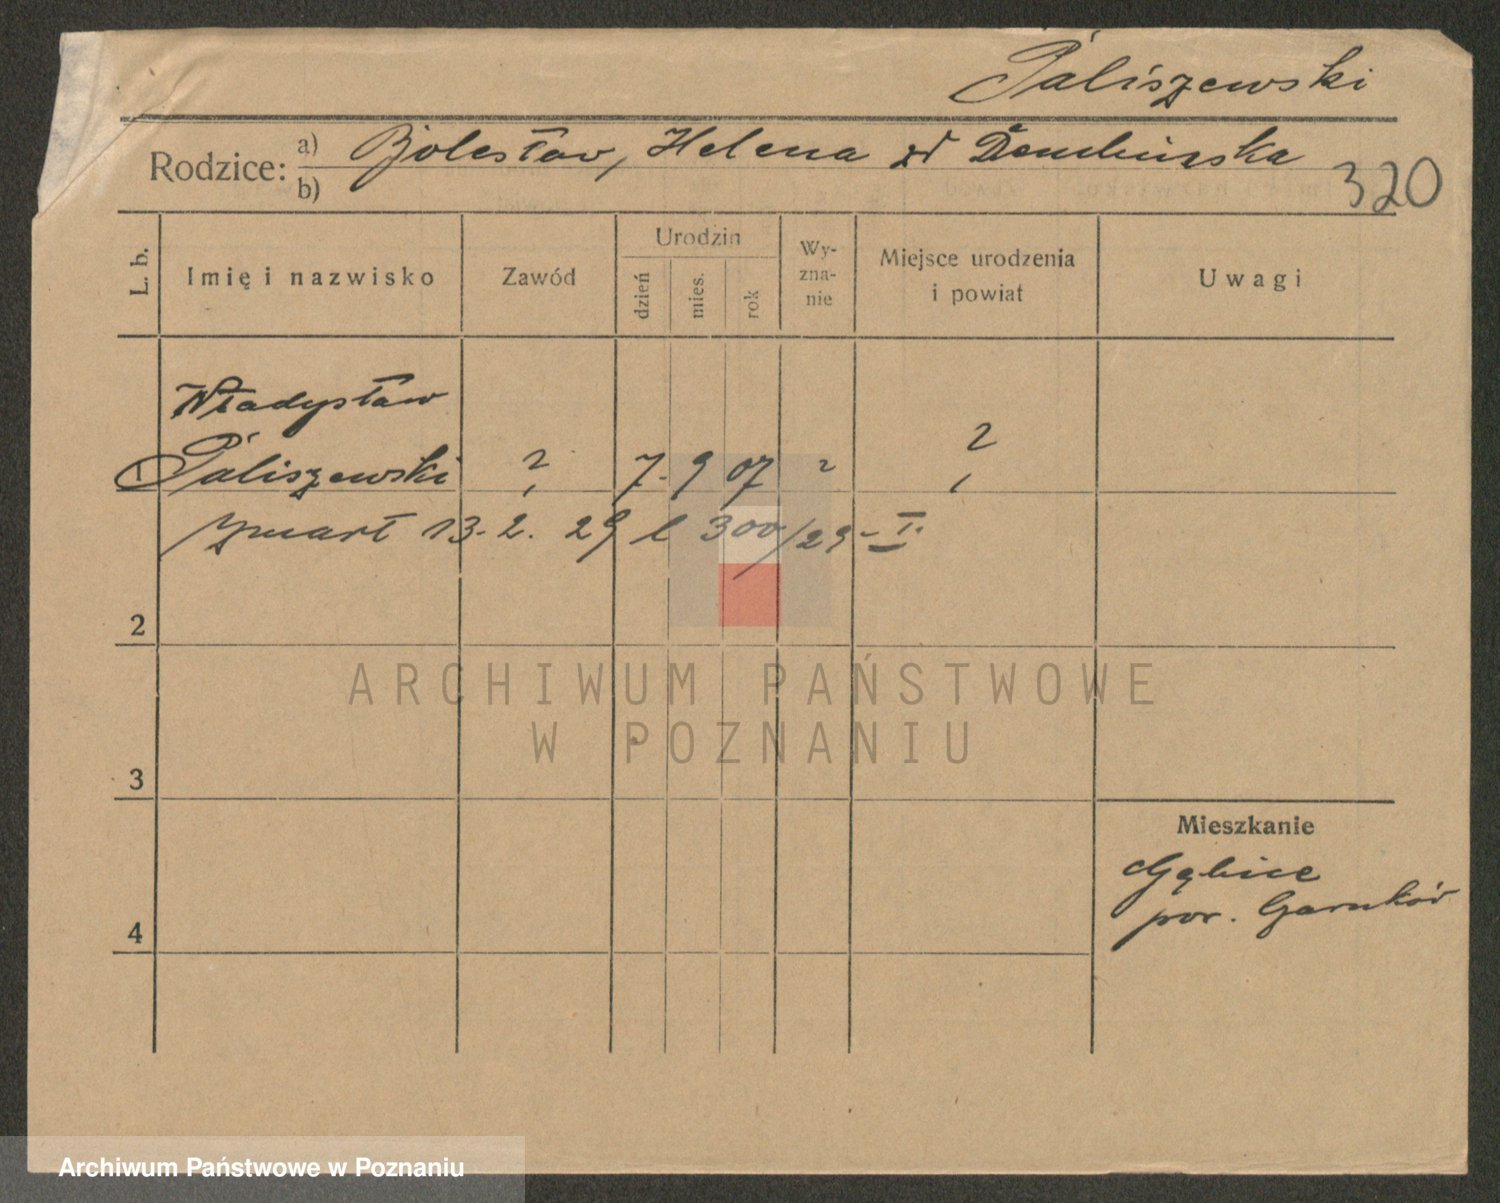 Paliszewski
Rodzice: a) Bolesław, Helena
b)
320
L. b.
Imię i nazwisko
Zawód
Urodzin
dzień
mies.
rok
Wy-
zna-
nie
Miejsce urodzenia
i powiat
Uwagi
Władysław
1 Paliszewski ? 7. 9 07 ? ?
zmarł 13. 2. 29 l 300/29 - I.
2
3
4
Mieszkanie
Gębice
pow. Czarnków
ARCHIWUM PAŃSTWOWE
W POZNANIU
Archiwum Państwowe w Poznaniu